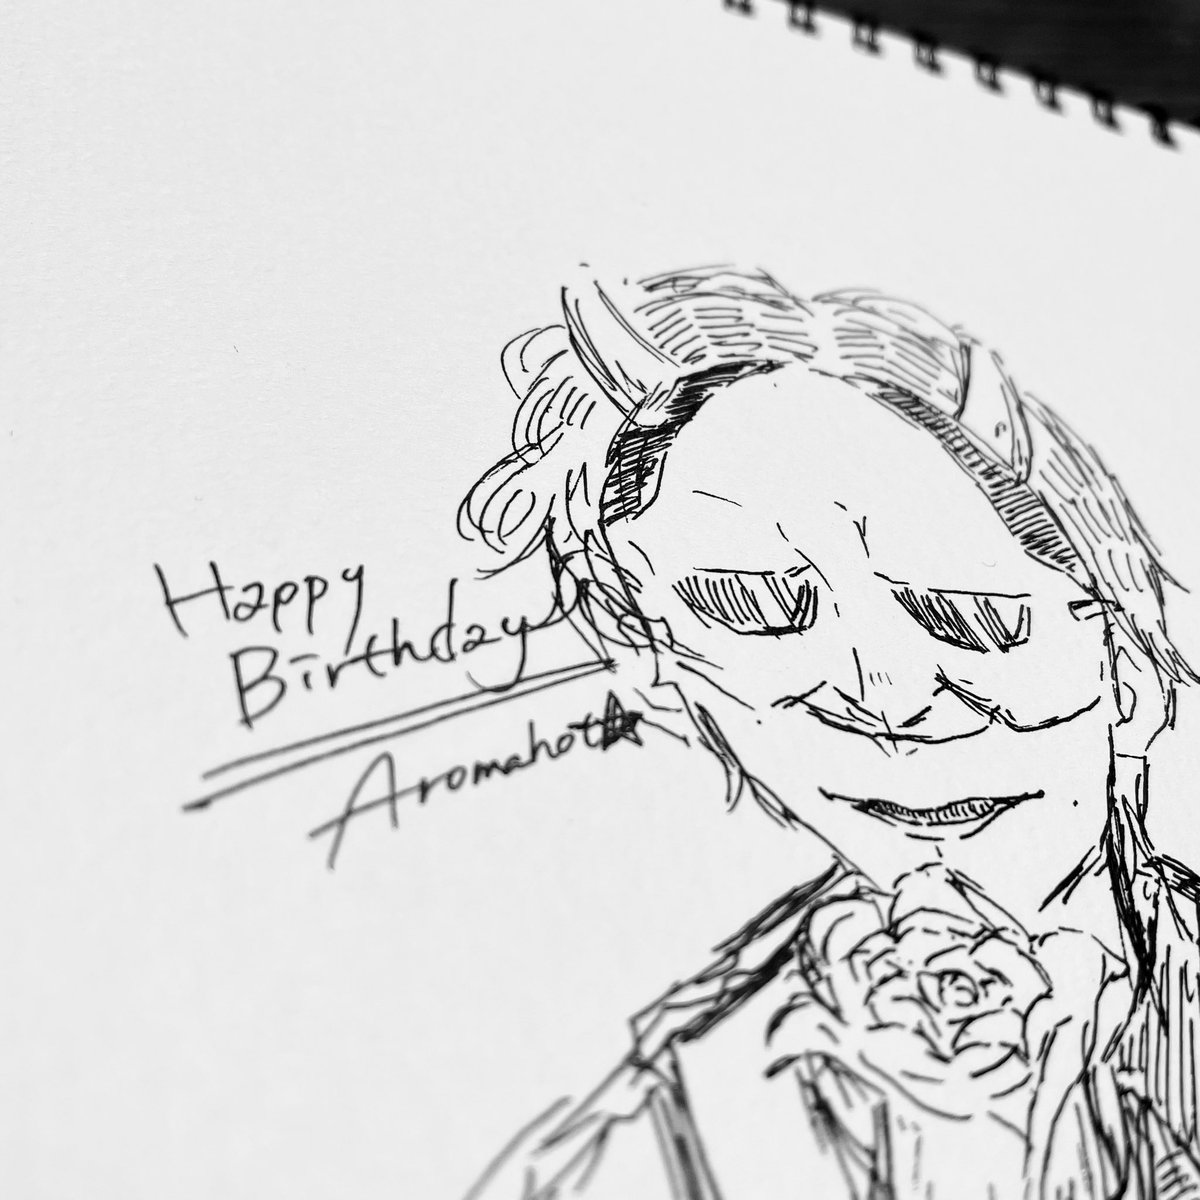 Happy
Birthday
Aromahot★